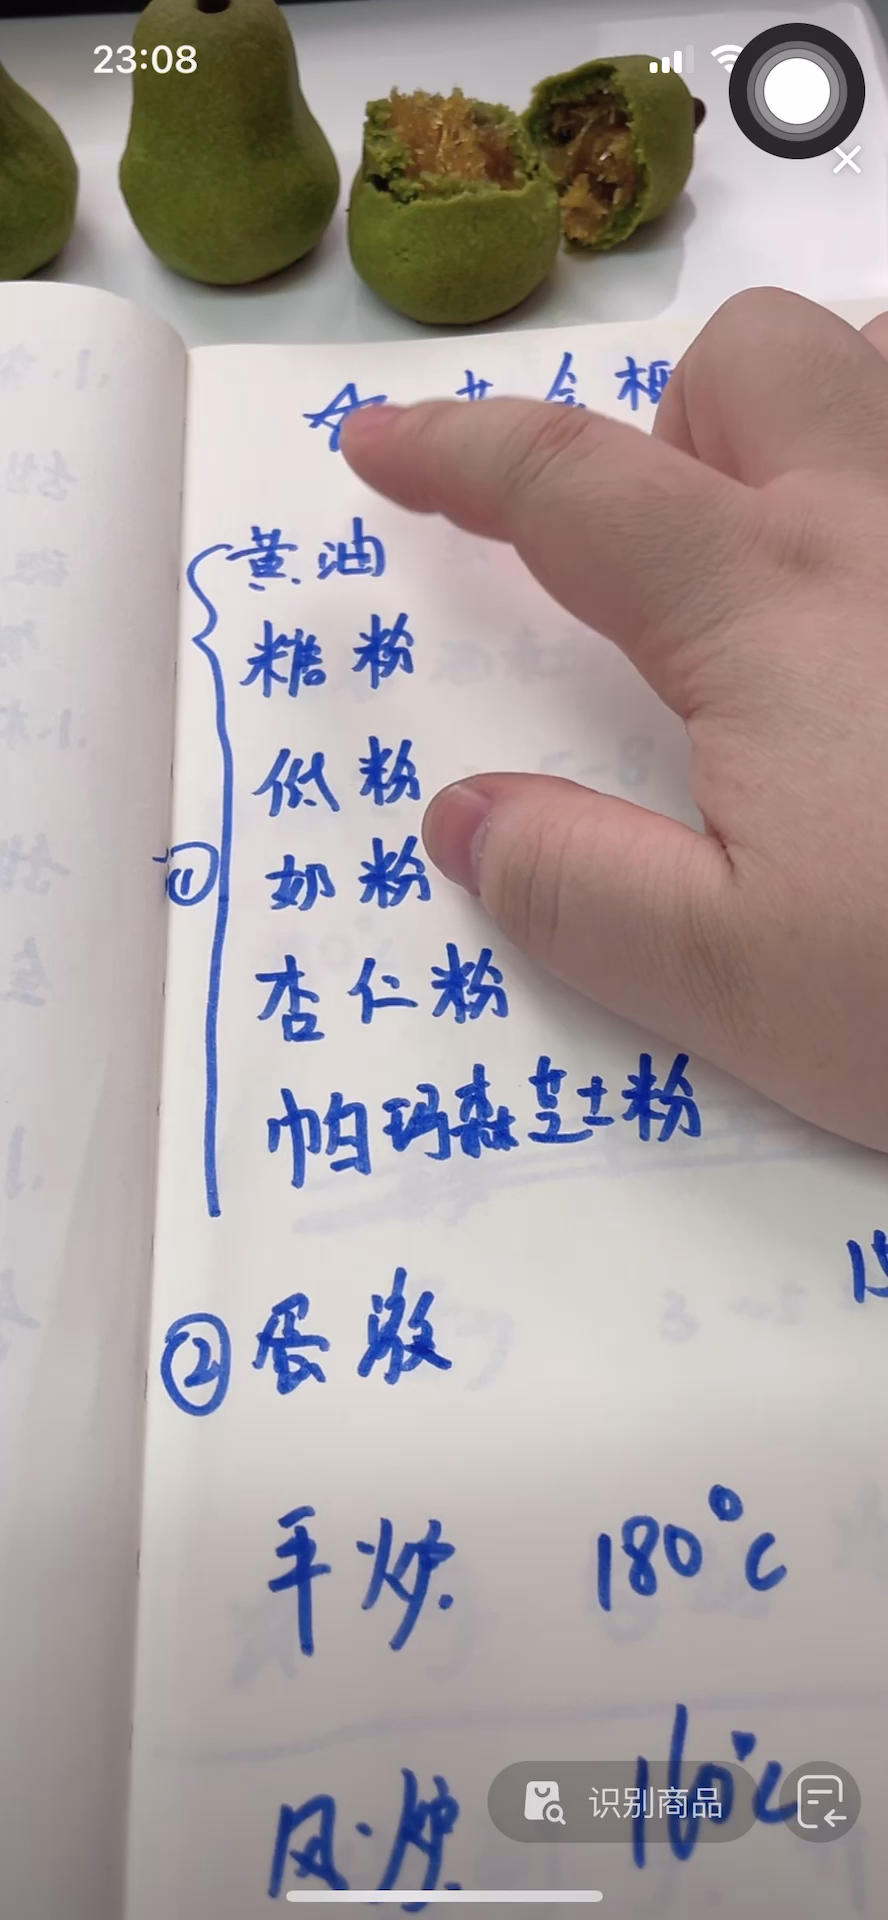 23:08
黄油
糖粉
低粉
① 奶粉
杏仁粉
帕玛森芝士粉
② 蛋液
平炉 180°C
风炉 160°C
识别商品